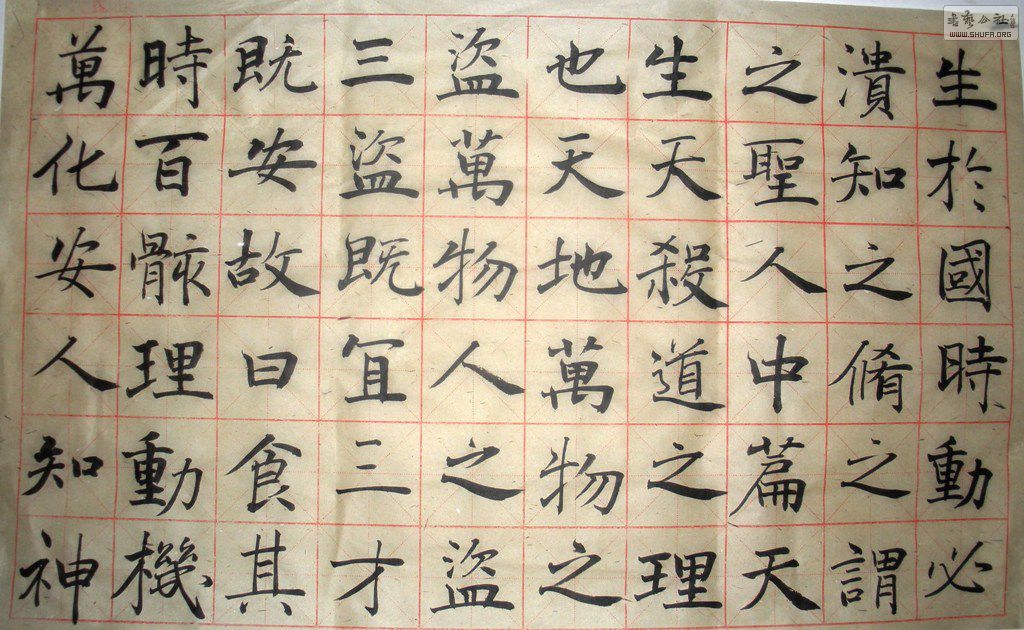 生於國時動必
潰知之脩之謂
之聖人中篇天
生天殺道之理
也天地萬物之
盜萬物人之盜
三盜既冝三才
既安故曰食其
時百骸理動機
萬化安人知神
書藝公社
WWW.SHUFA.ORG